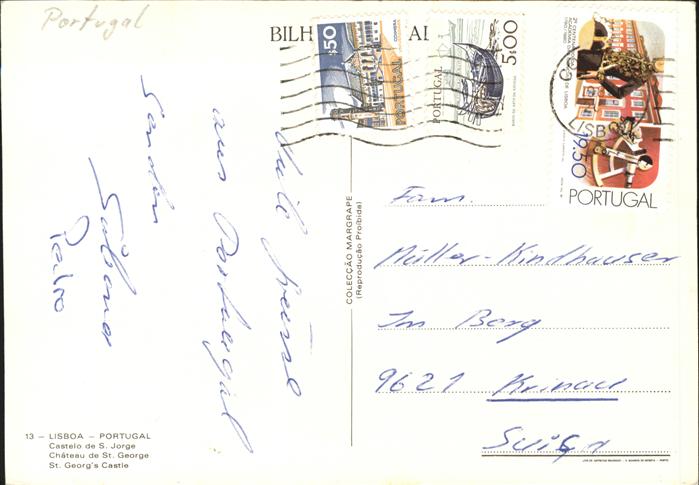 Portugal
BILH AL
Viele Grüsse
aus Portugal
senden
COLECÇÃO MARGRAPE
(Reprodução Proibida)
$50
COIMBRA
PORTUGAL
PORTUGAL
5.00
LISBOA
19.50
PORTUGAL
Fam.
Müller-Kindhauser
Im Berg
9621 Krinau
Suiça
13 – LISBOA – PORTUGAL
Castelo de S. Jorge
Château de St. George
St. Georg's Castle